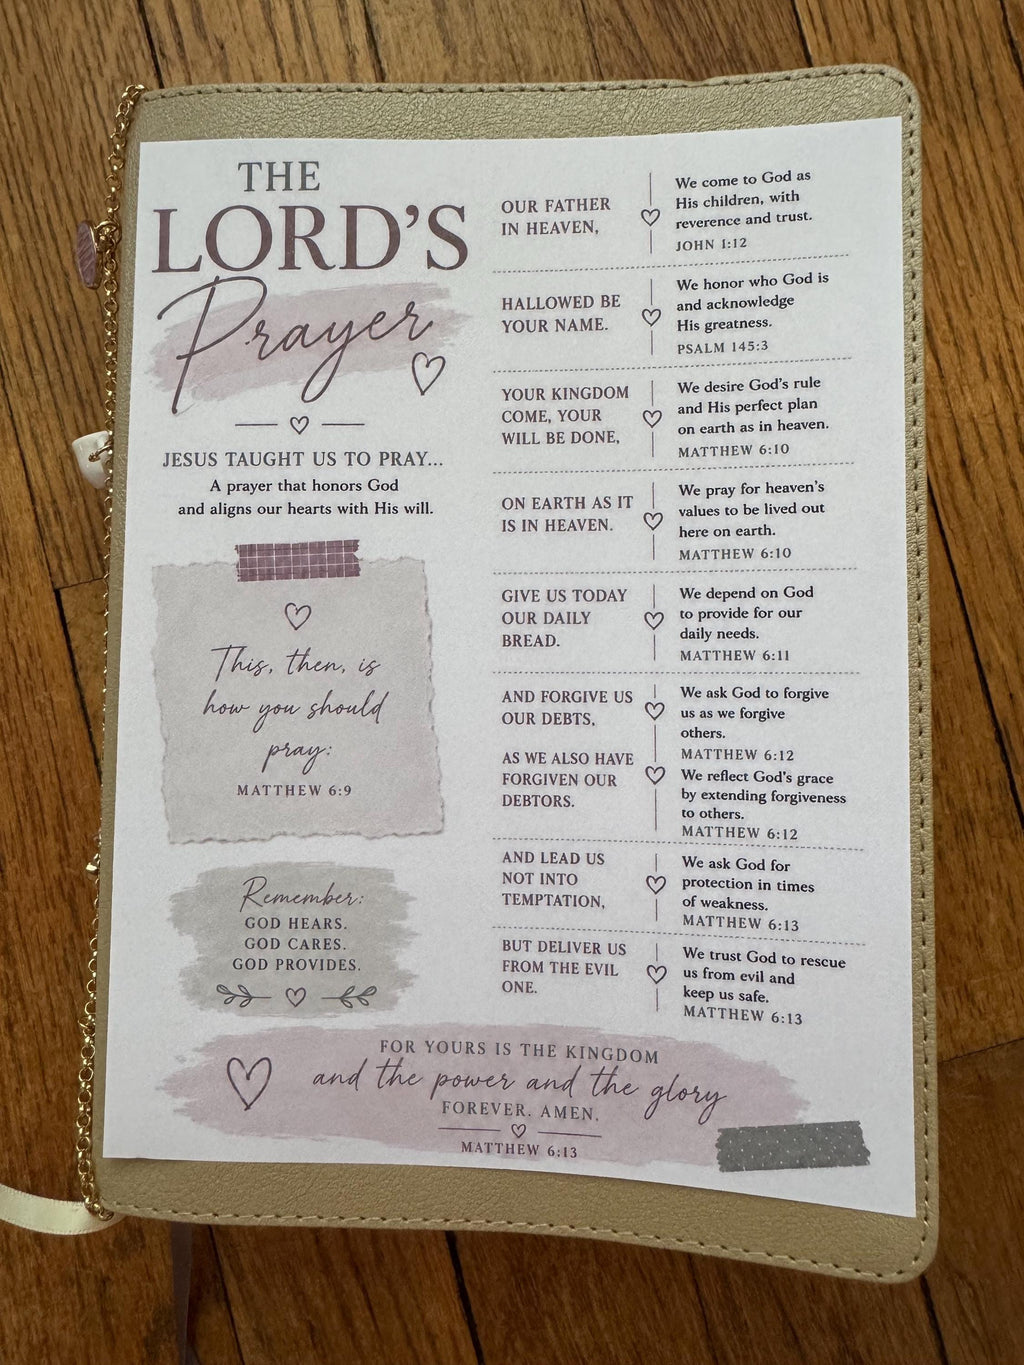 THE
LORD'S
Prayer
JESUS TAUGHT US TO PRAY...
A prayer that honors God
and aligns our hearts with His will.
This, then, is
how you should
pray:
MATTHEW 6:9
Remember:
GOD HEARS.
GOD CARES.
GOD PROVIDES.
OUR FATHER
IN HEAVEN,
We come to God as
His children, with
reverence and trust.
JOHN 1:12
HALLOWED BE
YOUR NAME.
We honor who God is
and acknowledge
His greatness.
PSALM 145:3
YOUR KINGDOM
COME, YOUR
WILL BE DONE,
We desire God's rule
and His perfect plan
on earth as in heaven.
MATTHEW 6:10
ON EARTH AS IT
IS IN HEAVEN.
We pray for heaven's
values to be lived out
here on earth.
MATTHEW 6:10
GIVE US TODAY
OUR DAILY
BREAD.
We depend on God
to provide for our
daily needs.
MATTHEW 6:11
AND FORGIVE US
OUR DEBTS,
We ask God to forgive
us as we forgive
others.
MATTHEW 6:12
AS WE ALSO HAVE
FORGIVEN OUR
DEBTORS.
We reflect God's grace
by extending forgiveness
to others.
MATTHEW 6:12
AND LEAD US
NOT INTO
TEMPTATION,
We ask God for
protection in times
of weakness.
MATTHEW 6:13
BUT DELIVER US
FROM THE EVIL
ONE.
We trust God to rescue
us from evil and
keep us safe.
MATTHEW 6:13
FOR YOURS IS THE KINGDOM
and the power and the glory
FOREVER. AMEN.
MATTHEW 6:13